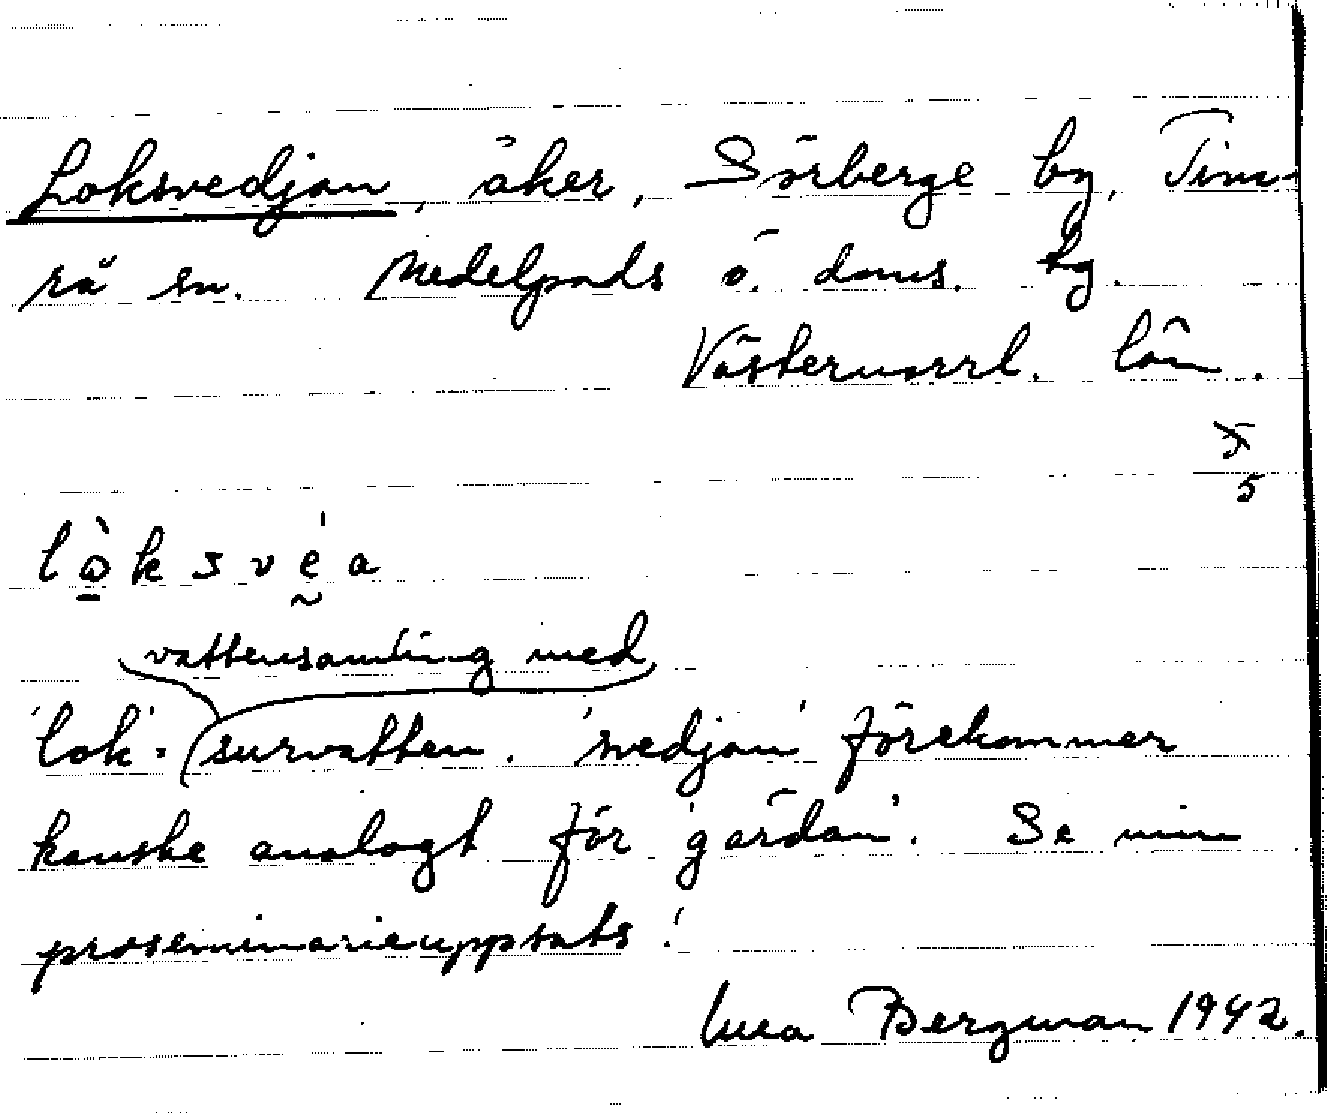 Loksvedjan, åker, Sörberge by, Tim-
rå sn. Medelpads ö. doms. hg.
Västernorrl. län.
5
lòksvéa
vattensamling med
'lok' = survatten. 'svedjan' förekommer
kanske analogt för 'gärdan'. Se min
proseminarieuppsats!
Bergman 1942.